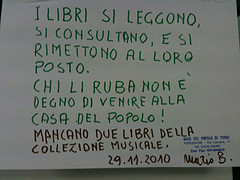 I LIBRI SI LEGGONO,
SI CONSULTANO, E SI
RIMETTONO AL LORO
POSTO.
CHI LI RUBA NON È
DEGNO DI VENIRE ALLA
CASA DEL POPOLO!
MANCANO DUE LIBRI DELLA
COLLEZIONE MUSICALE.
29.11.2010 Mario B.
CASA DEL POPOLO DI